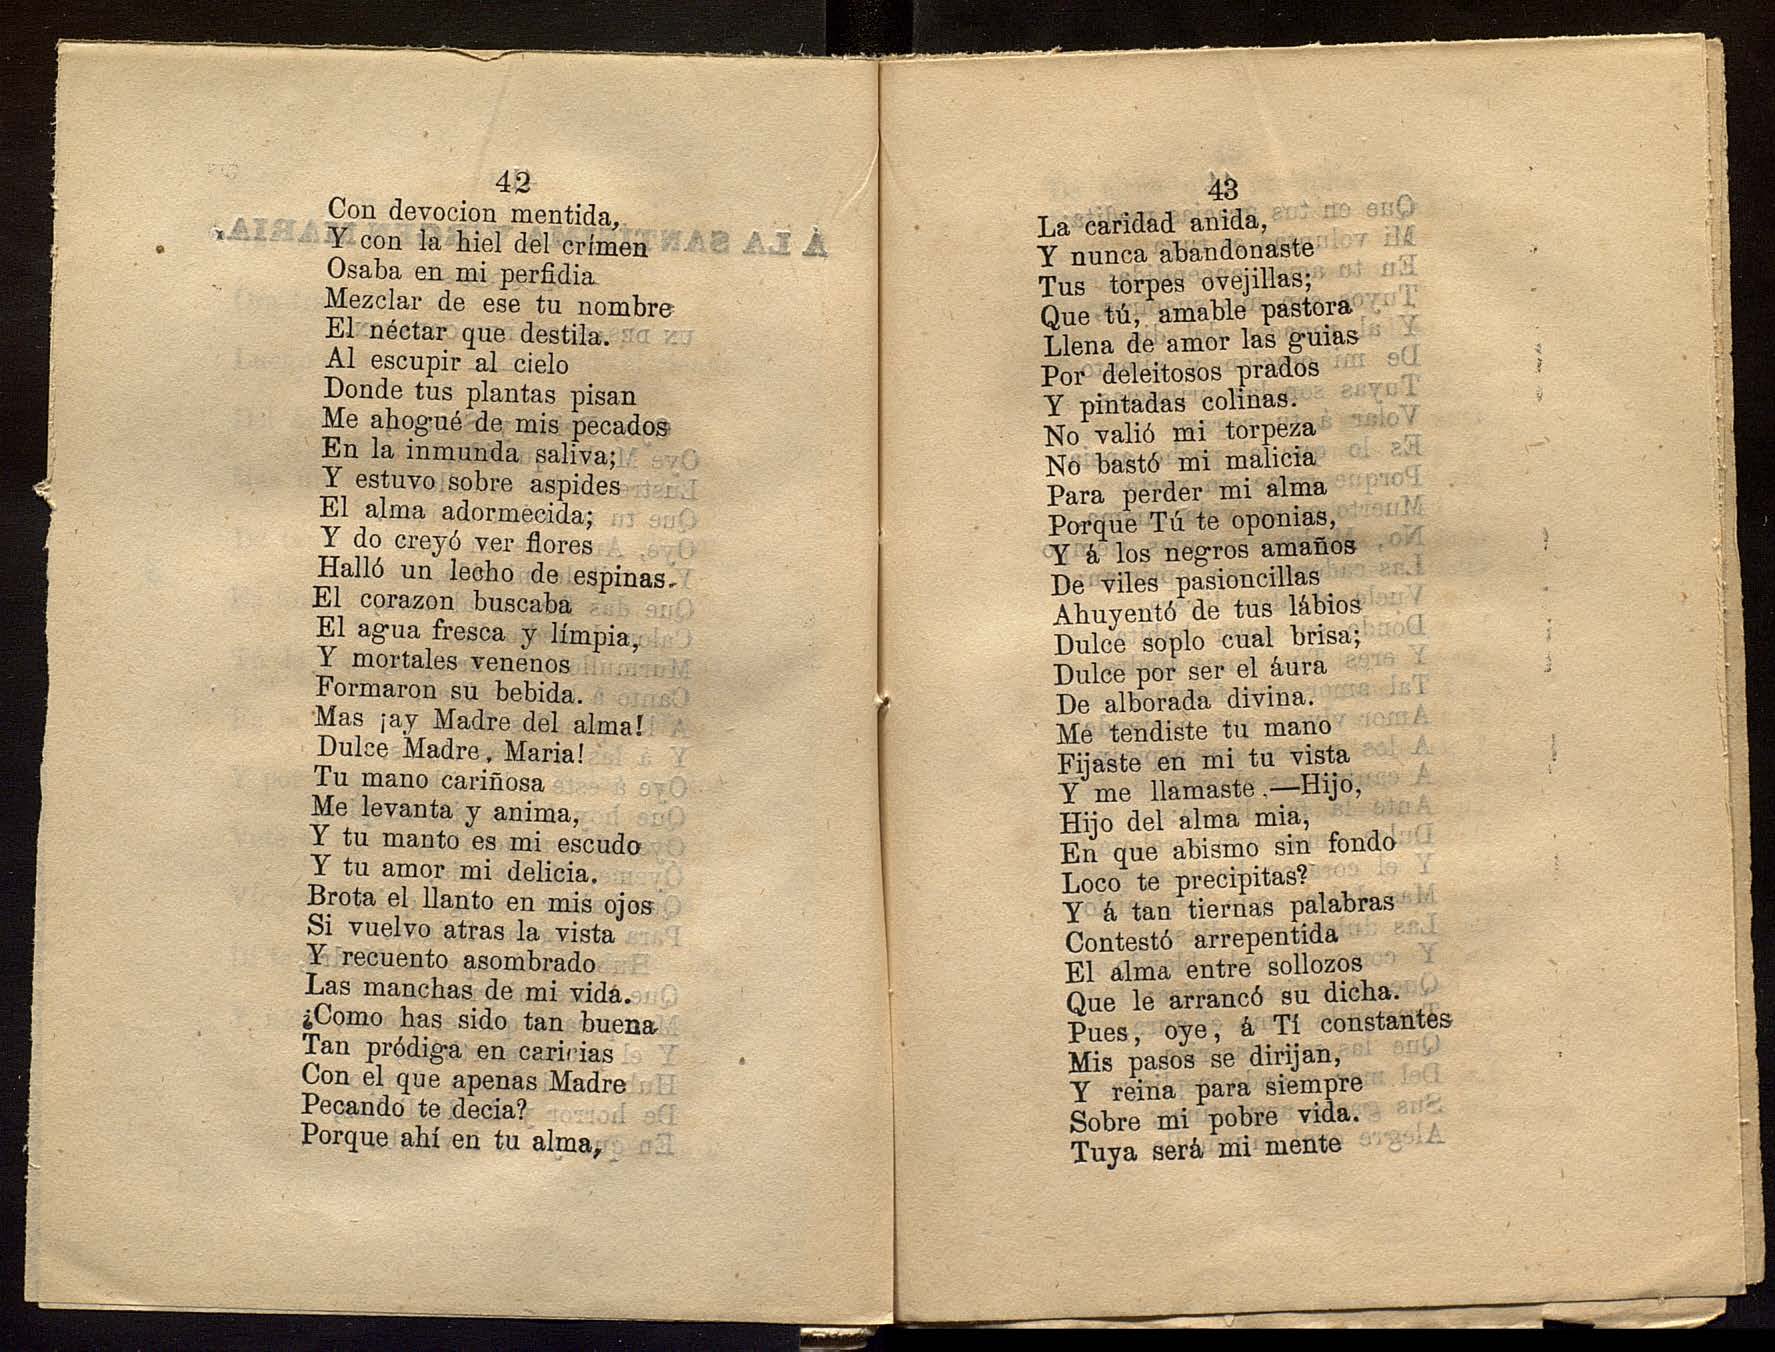 42
Con devocion mentida,
Y con la hiel del crímen
Osaba en mi perfidia
Mezclar de ese tu nombre
El néctar que destila.
Al escupir al cielo
Donde tus plantas pisan
Me ahogué de mis pecados
En la inmunda saliva;
Y estuvo sobre aspides
El alma adormecida;
Y do creyó ver flores
Halló un lecho de espinas.
El corazon buscaba
El agua fresca y límpia,
Y mortales venenos
Formaron su bebida.
Mas ¡ay Madre del alma!
Dulce Madre, Maria!
Tu mano cariñosa
Me levanta y anima,
Y tu manto es mi escudo
Y tu amor mi delicia.
Brota el llanto en mis ojos
Si vuelvo atras la vista
Y recuento asombrado
Las manchas de mi vida.
¿Como has sido tan buena
Tan pródiga en caricias
Con el que apenas Madre
Pecando te decia?
Porque ahí en tu alma,
43
La caridad anida,
Y nunca abandonaste
Tus torpes ovejillas;
Que tú, amable pastora
Llena de amor las guias
Por deleitosos prados
Y pintadas colinas.
No valió mi torpeza
No bastó mi malicia
Para perder mi alma
Porque Tú te oponias,
Y á los negros amaños
De viles pasioncillas
Ahuyentó de tus lábios
Dulce soplo cual brisa;
Dulce por ser el áura
De alborada divina.
Me tendiste tu mano
Fijaste en mi tu vista
Y me llamaste.—Hijo,
Hijo del alma mia,
En que abismo sin fondo
Loco te precipitas?
Y á tan tiernas palabras
Contestó arrepentida
El alma entre sollozos
Que le arrancó su dicha.
Pues, oye, á Tí constantes
Mis pasos se dirijan,
Y reina para siempre
Sobre mi pobre vida.
Tuya será mi mente